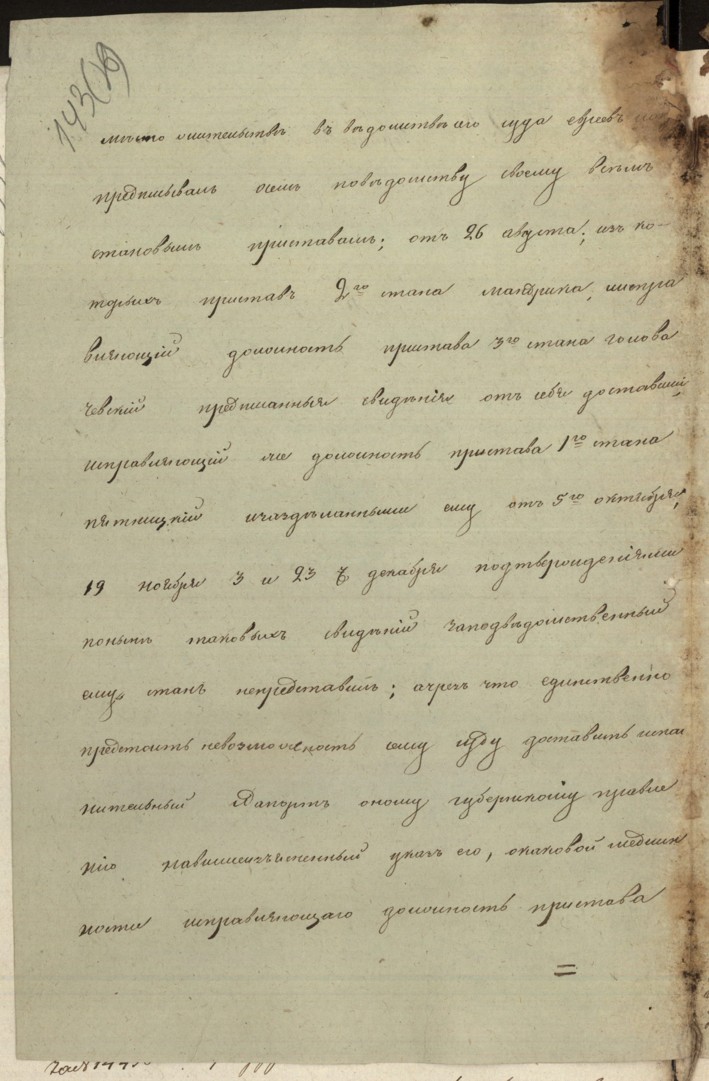 143(об)
мѣсто жительствъ въ вѣдомствѣ его суда евреевъ
предписывалъ онъ повѣдомству своему всѣмъ
становымъ приставамъ; отъ 26 августа; изъ ко-
торыхъ приставъ 2го стана Мандрика, исправ
вляющій должность пристава 3го стана Голова
чевскій предписанныя свидѣнія отъ себя доставили,
исправляющій же должность пристава 1го стана
Пятницкій изаздѣланными ему отъ 5го октября,
19 ноября 3 и 23 декабря подтвержденіями
понынѣ таковыхъ свидѣній заподвѣдомственный
ему станъ непредставилъ; ачрезъ что единственно
предстоитъ невозможность сему суду доставить испол
нительный Рапортъ оному губернскому правле
нію навышеизъясненный указъ его, окаковой медлен
ности исправляющаго должность пристава
=